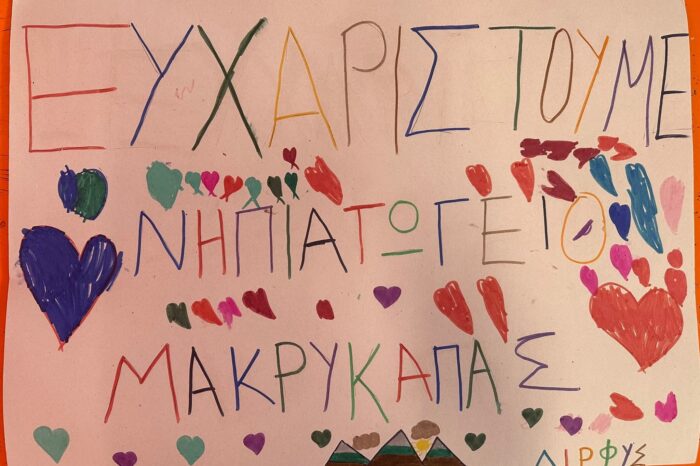 ΕΥΧΑΡΙΣΤΟΥΜΕ
ΝΗΠΙΑΤΩΓΕΙΟ
ΜΑΚΡΥΚΑΠΑΣ
ΔΙΡΦΥΣ